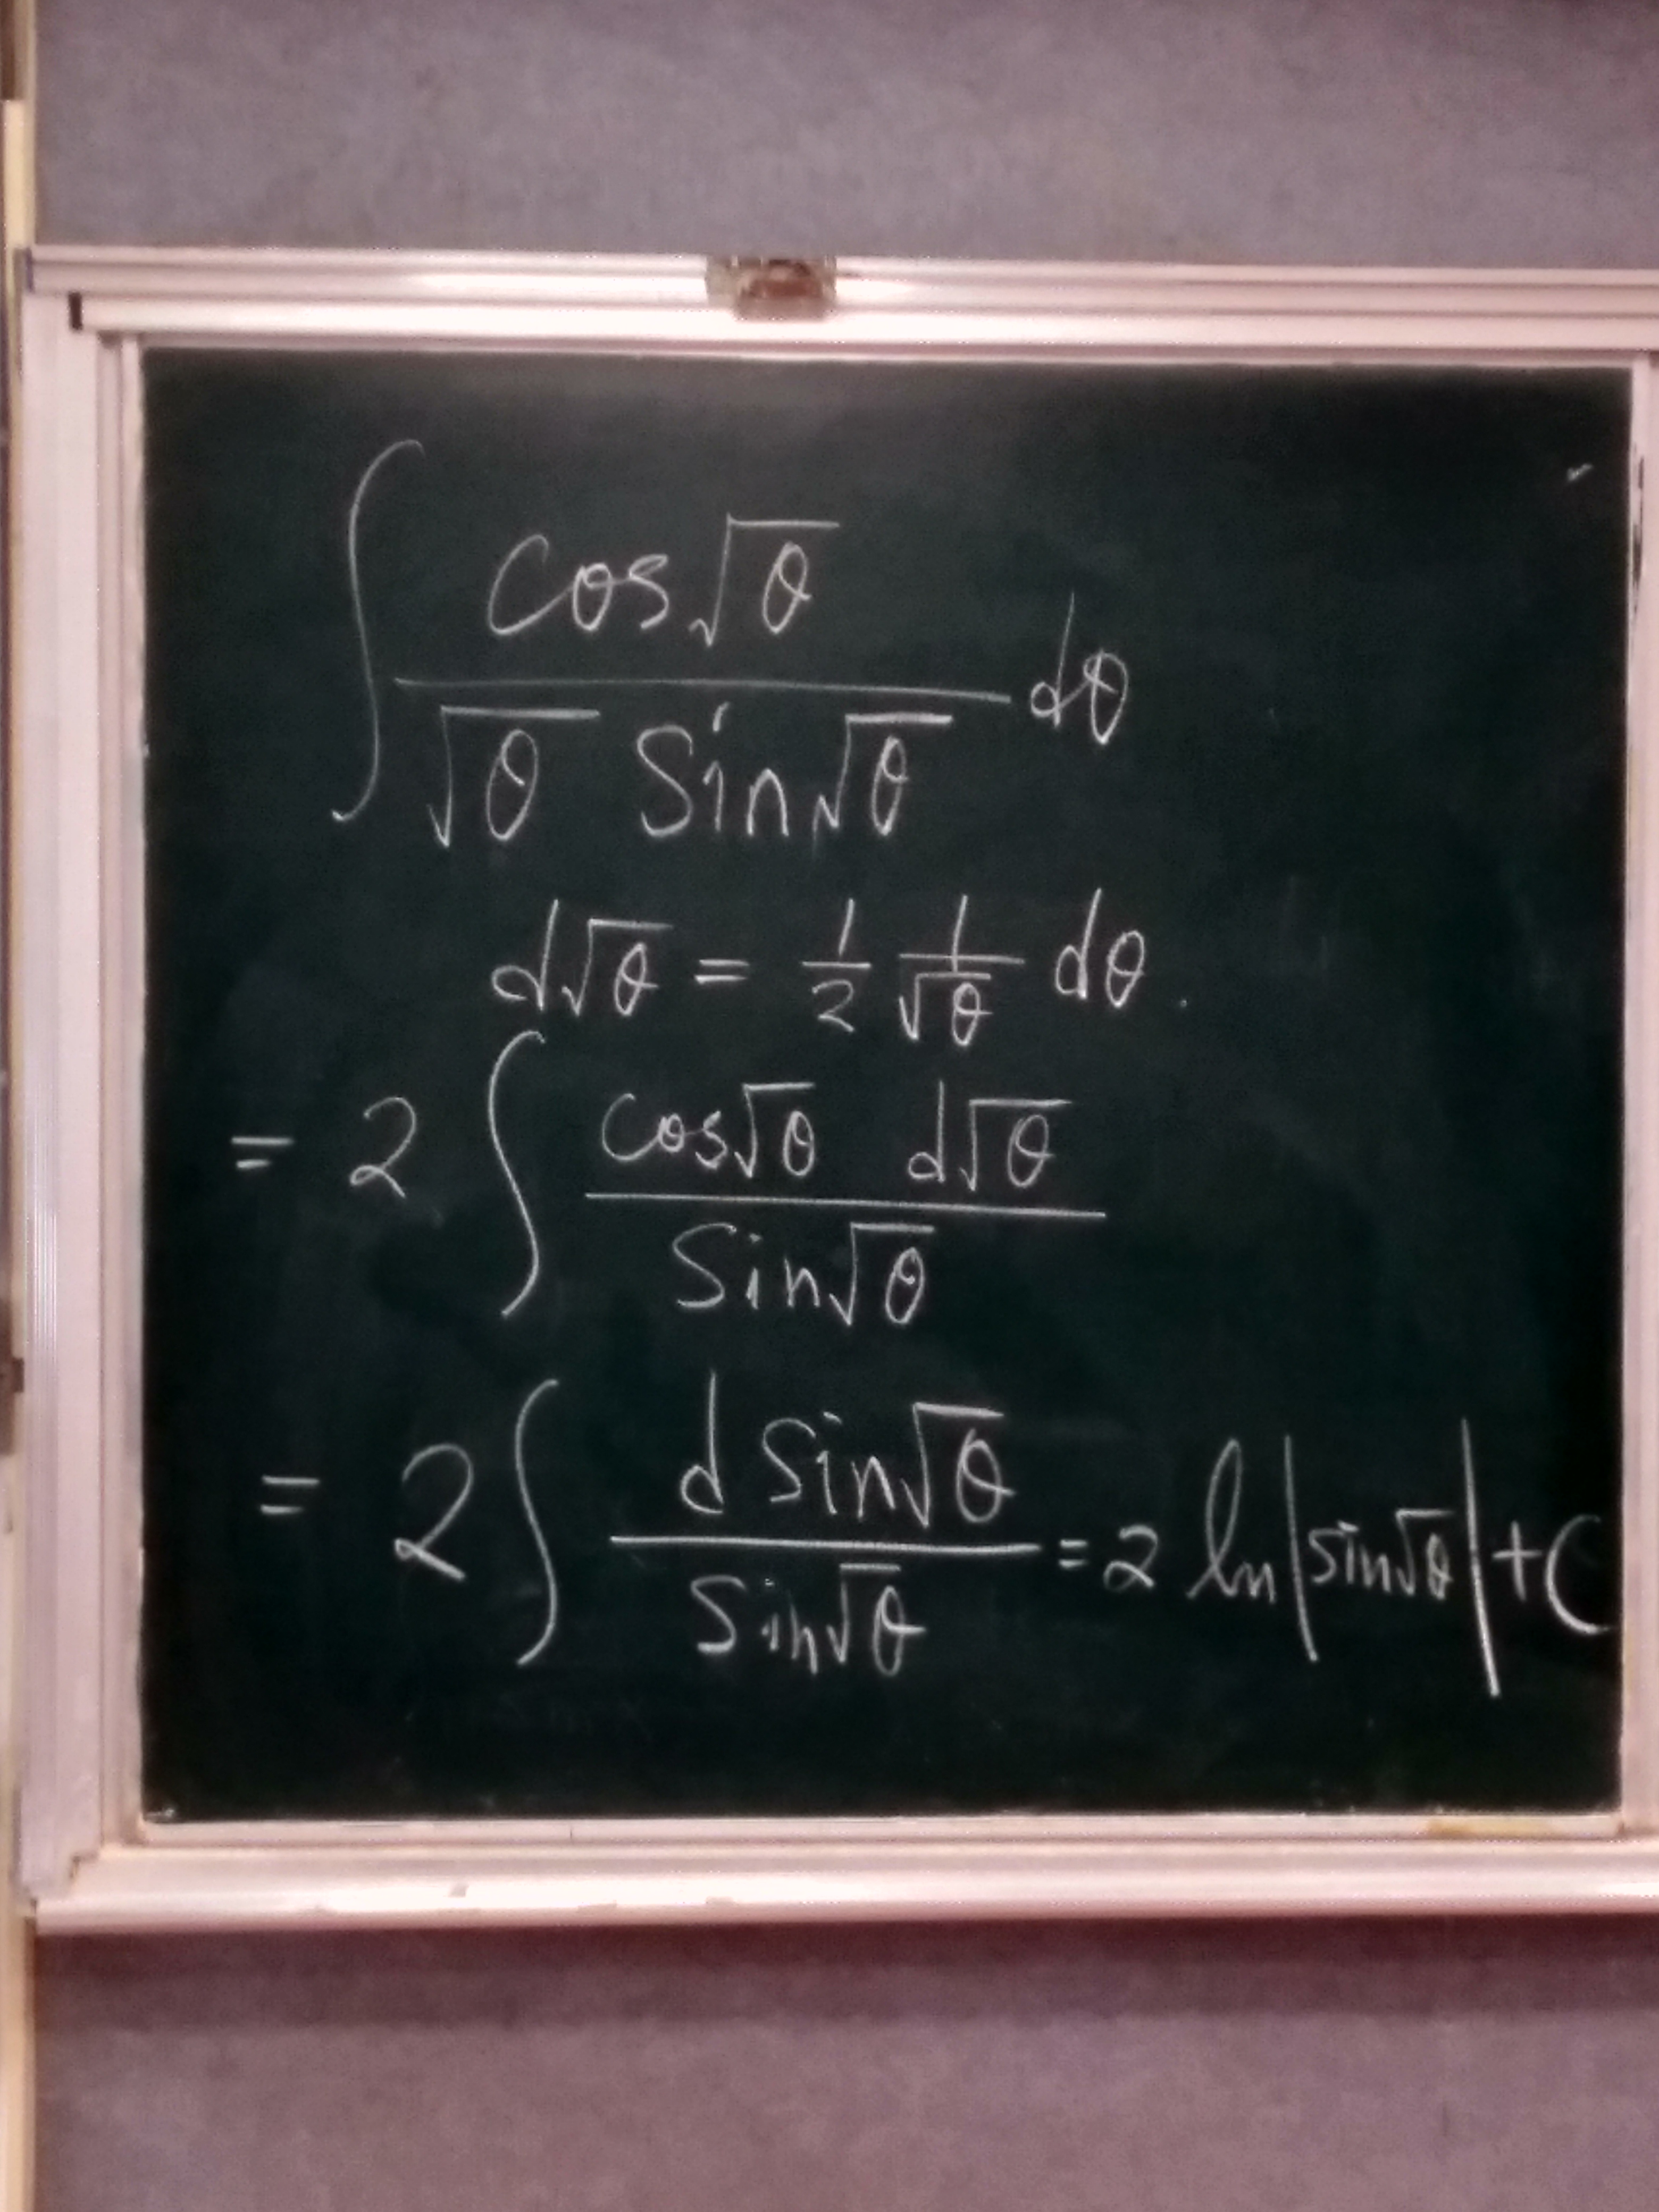 ∫ cos√θ / (√θ sin√θ) dθ
d√θ = 1/2 1/√θ dθ.
= 2 ∫ cos√θ d√θ / sin√θ
= 2 ∫ d sin√θ / sin√θ = 2 ln|sin√θ| + C